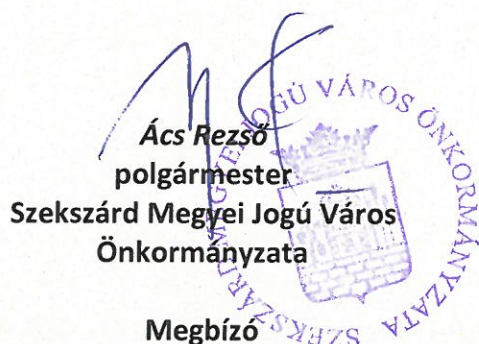 Ács Rezső
polgármester
Szekszárd Megyei Jogú Város
Önkormányzata
Megbízó
SZEKSZÁRD MEGYEI JOGÚ VÁROS ÖNKORMÁNYZATA